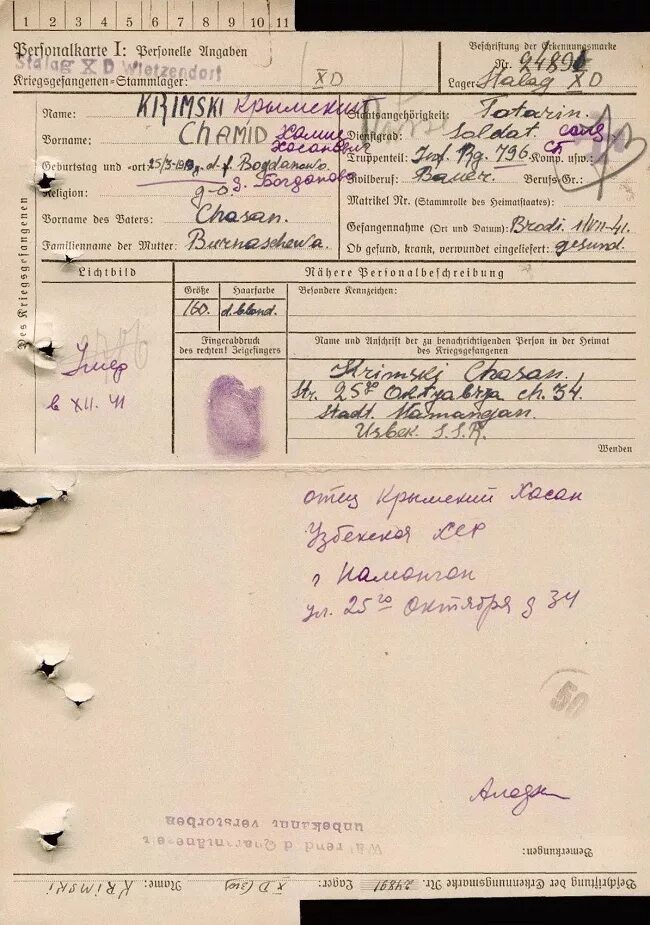 1 2 3 4 5 6 7 8 9 10 11
Personalkarte I: Personelle Angaben
Stalag X D Wietzendorf
Kriegsgefangenen-Stammlager:
X D
Beschriftung der Erkennungsmarke
Nr. 24891
Lager: Stalag X D
Des Kriegsgefangenen
Name: KRIMSKI Крымский
Vorname: CHAMID
Хасанович
Geburtstag und -ort: d. f. Bogdanowa
д. Богданово
Religion:
Vorname des Vaters: Chasan.
Familienname der Mutter: Burnaschewa.
Staatsangehörigkeit: Tatarin.
Dienstgrad: Soldat. солд
Truppenteil: Inf. Rg. 796 Komp. usw.: СП
Zivilberuf: Bauer. Berufs-Gr.:
Matrikel Nr. (Stammrolle des Heimatstaates):
Gefangennahme (Ort und Datum): Brodi.
Ob gesund, krank, verwundet eingeliefert: gesund.
Lichtbild
Умер
в XII. 41
Nähere Personalbeschreibung
Größe Haarfarbe Besondere Kennzeichen:
160. d. blond.
Fingerabdruck
des rechten! Zeigefingers
Name und Anschrift der zu benachrichtigenden Person in der Heimat
des Kriegsgefangenen
Krimski Chasan.
Str. 25go Oktyabrza ch. 34.
Stadt. Namangan.
Usbek. S.S.R.
Wenden
отец Крымский Хасан
Узбекская ССР
г Наманган
ул. 25го Октября д 34
50
Bemerkungen:
Während d. Quarantäne
unbekannt verstorben
Beschriftung der Erkennungsmarke Nr. 24891 Lager: X D (310) Name: KRIMSKI